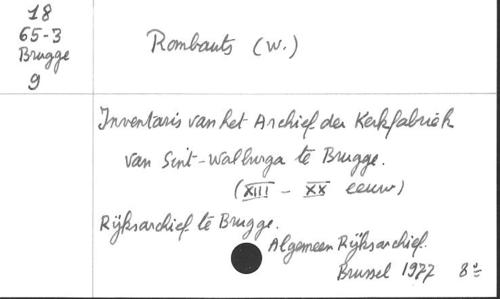 18
65-3
Brugge
9
Rombauts (W.)
Inventaris van het Archief der Kerkfabriek
van Sint-Walburga te Brugge.
(XIII - XX eeuw)
Rijksarchief te Brugge.
Algemeen Rijksarchief.
Brussel 1977 8°